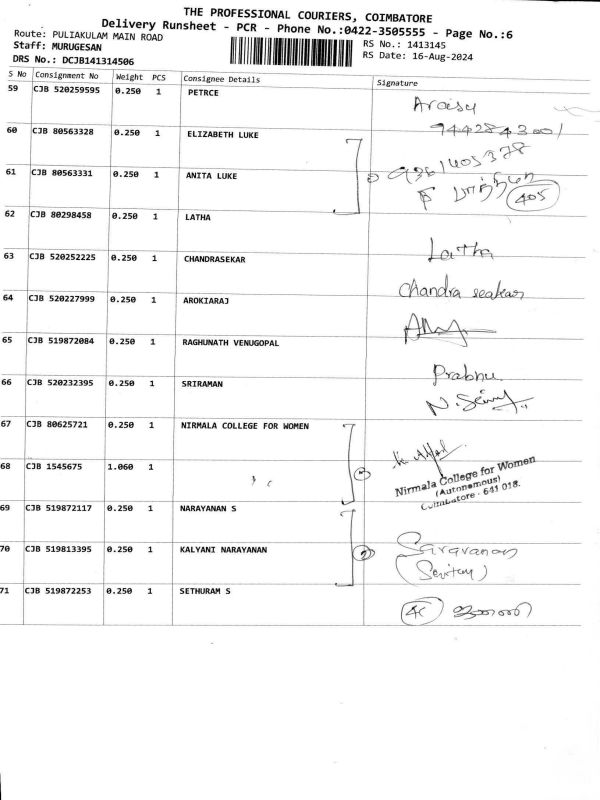 THE PROFESSIONAL COURIERS, COIMBATORE
Delivery Runsheet - PCR - Phone No.:0422-3505555 - Page No.:6
Route: PULIAKULAM MAIN ROAD
RS No.: 1413145
Staff: MURUGESAN
RS Date: 16-Aug-2024
DRS No.: DCJB141314506
S No Consignment No Weight PCS Consignee Details Signature
59 CJB 520259595 0.250 1 PETRCE
60 CJB 80563328 0.250 1 ELIZABETH LUKE
9361405378
61 CJB 80563331 0.250 1 ANITA LUKE
405
62 CJB 80298458 0.250 1 LATHA
Latha
63 CJB 520252225 0.250 1 CHANDRASEKAR
Chandra seakar
64 CJB 520227999 0.250 1 AROKIARAJ
65 CJB 519872084 0.250 1 RAGHUNATH VENUGOPAL
Prabhu
66 CJB 520232395 0.250 1 SRIRAMAN
67 CJB 80625721 0.250 1 NIRMALA COLLEGE FOR WOMEN
68 CJB 1545675 1.060 1
Nirmala College for Women
(Autonomous)
Coimbatore - 641 018.
69 CJB 519872117 0.250 1 NARAYANAN S
70 CJB 519813395 0.250 1 KALYANI NARAYANAN
Saravanan
71 CJB 519872253 0.250 1 SETHURAM S